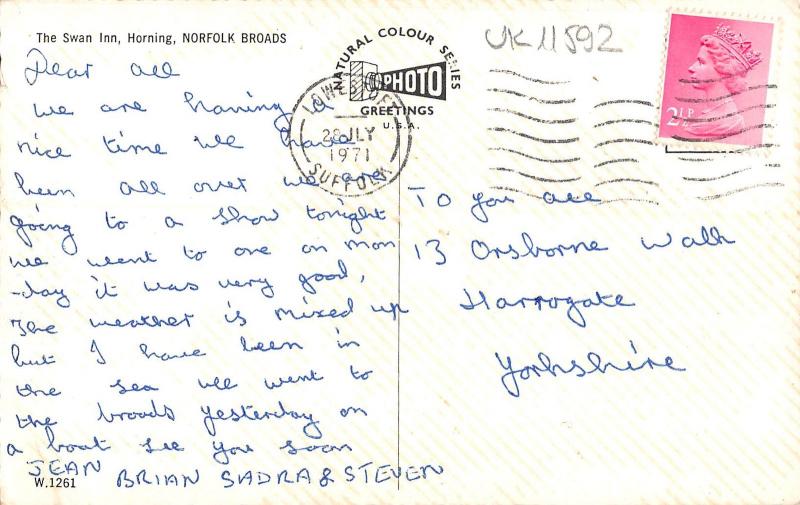 The Swan Inn, Horning, NORFOLK BROADS
Dear all
we are having a
nice time we have
been all over we are
going to a show tonight
we went to one on mon
-day it was very good,
The weather is mixed up
but I have been in
the sea we went to
the broads yesterday on
a boat see you soon
JEAN BRIAN SADRA & STEVEN
W.1261
NATURAL COLOUR SERIES
PHOTO
GREETINGS
U.S.A.
LOWESTOFT
28 JLY
1971
SUFFOLK
UK11592
2½P
To you all
13 Orsborne Walk
Harrogate
Yorkshire